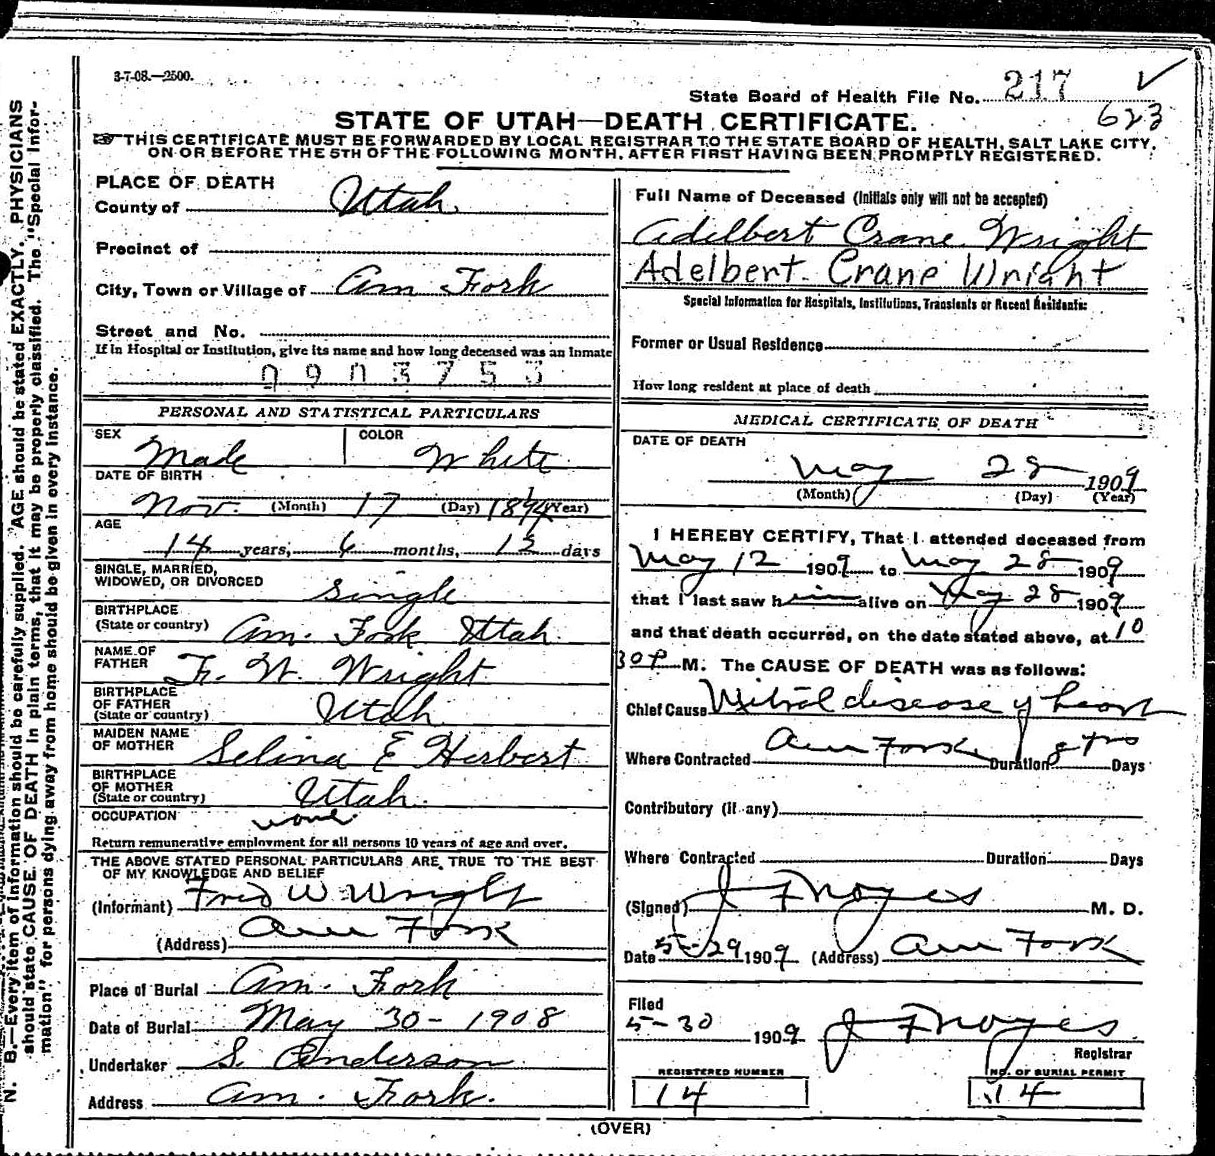 3-7-08.—2500.
State Board of Health File No. 217
623
STATE OF UTAH—DEATH CERTIFICATE.
THIS CERTIFICATE MUST BE FORWARDED BY LOCAL REGISTRAR TO THE STATE BOARD OF HEALTH, SALT LAKE CITY,
ON OR BEFORE THE 5TH OF THE FOLLOWING MONTH, AFTER FIRST HAVING BEEN PROMPTLY REGISTERED.
PLACE OF DEATH
County of Utah
Precinct of
City, Town or Village of Am Fork
Street and No.
If in Hospital or Institution, give its name and how long deceased was an Inmate
0903753
PERSONAL AND STATISTICAL PARTICULARS
SEX Male COLOR White
DATE OF BIRTH
Nov. (Month) 17 (Day) 1894 (Year)
AGE
14 years, 6 months, days
SINGLE, MARRIED,
WIDOWED, OR DIVORCED Single
BIRTHPLACE
(State or country) Am. Fork Utah
NAME OF
FATHER F. W. Wright
BIRTHPLACE
OF FATHER
(State or country) Utah
MAIDEN NAME
OF MOTHER Selina E Herbert
BIRTHPLACE
OF MOTHER
(State or country) Utah.
OCCUPATION none
Return remunerative employment for all persons 10 years of age and over.
THE ABOVE STATED PERSONAL PARTICULARS ARE TRUE TO THE BEST
OF MY KNOWLEDGE AND BELIEF
(Informant) Fred W Wright
(Address) Am Fork
Place of Burial Am. Fork
Date of Burial May 30 - 1908
Undertaker S. Anderson
Address Am. Fork.
Full Name of Deceased (Initials only will not be accepted)
Adelbert Crane Wright
Adelbert Crane Wright
Special Information for Hospitals, Institutions, Transients or Recent Residents:
Former or Usual Residence
How long resident at place of death
MEDICAL CERTIFICATE OF DEATH
DATE OF DEATH
May 28 1909
(Month) (Day) (Year)
I HEREBY CERTIFY, That I attended deceased from
May 12 1909 to May 28 1909
that I last saw him alive on May 28 1909
and that death occurred, on the date stated above, at 10
30 P M. The CAUSE OF DEATH was as follows:
Chief Cause Mitral disease of heart
Where Contracted Am Fork Duration 8 yrs Days
Contributory (if any)
Where Contracted Duration Days
(Signed) J F Noyes M. D.
Date 5-29 1909 (Address) Am Fork
Filed
5-30 1909 J F Noyes
Registrar
REGISTERED NUMBER
14
NO. OF BURIAL PERMIT
14
(OVER)
N. B.—Every item of information should be carefully supplied. AGE should be stated EXACTLY. PHYSICIANS
should state CAUSE OF DEATH in plain terms, that it may be properly classified. The "Special Infor-
mation" for persons dying away from home should be given in every instance.